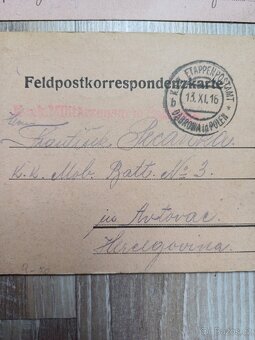 Feldpostkorrespondenzkarte
K.u.K. ETAPPENPOSTAMT
b
13. XI. 16
DABROWA in POLEN
František
K. K. Mob. Batt. No 3.
in Avtovac
Hercegovina